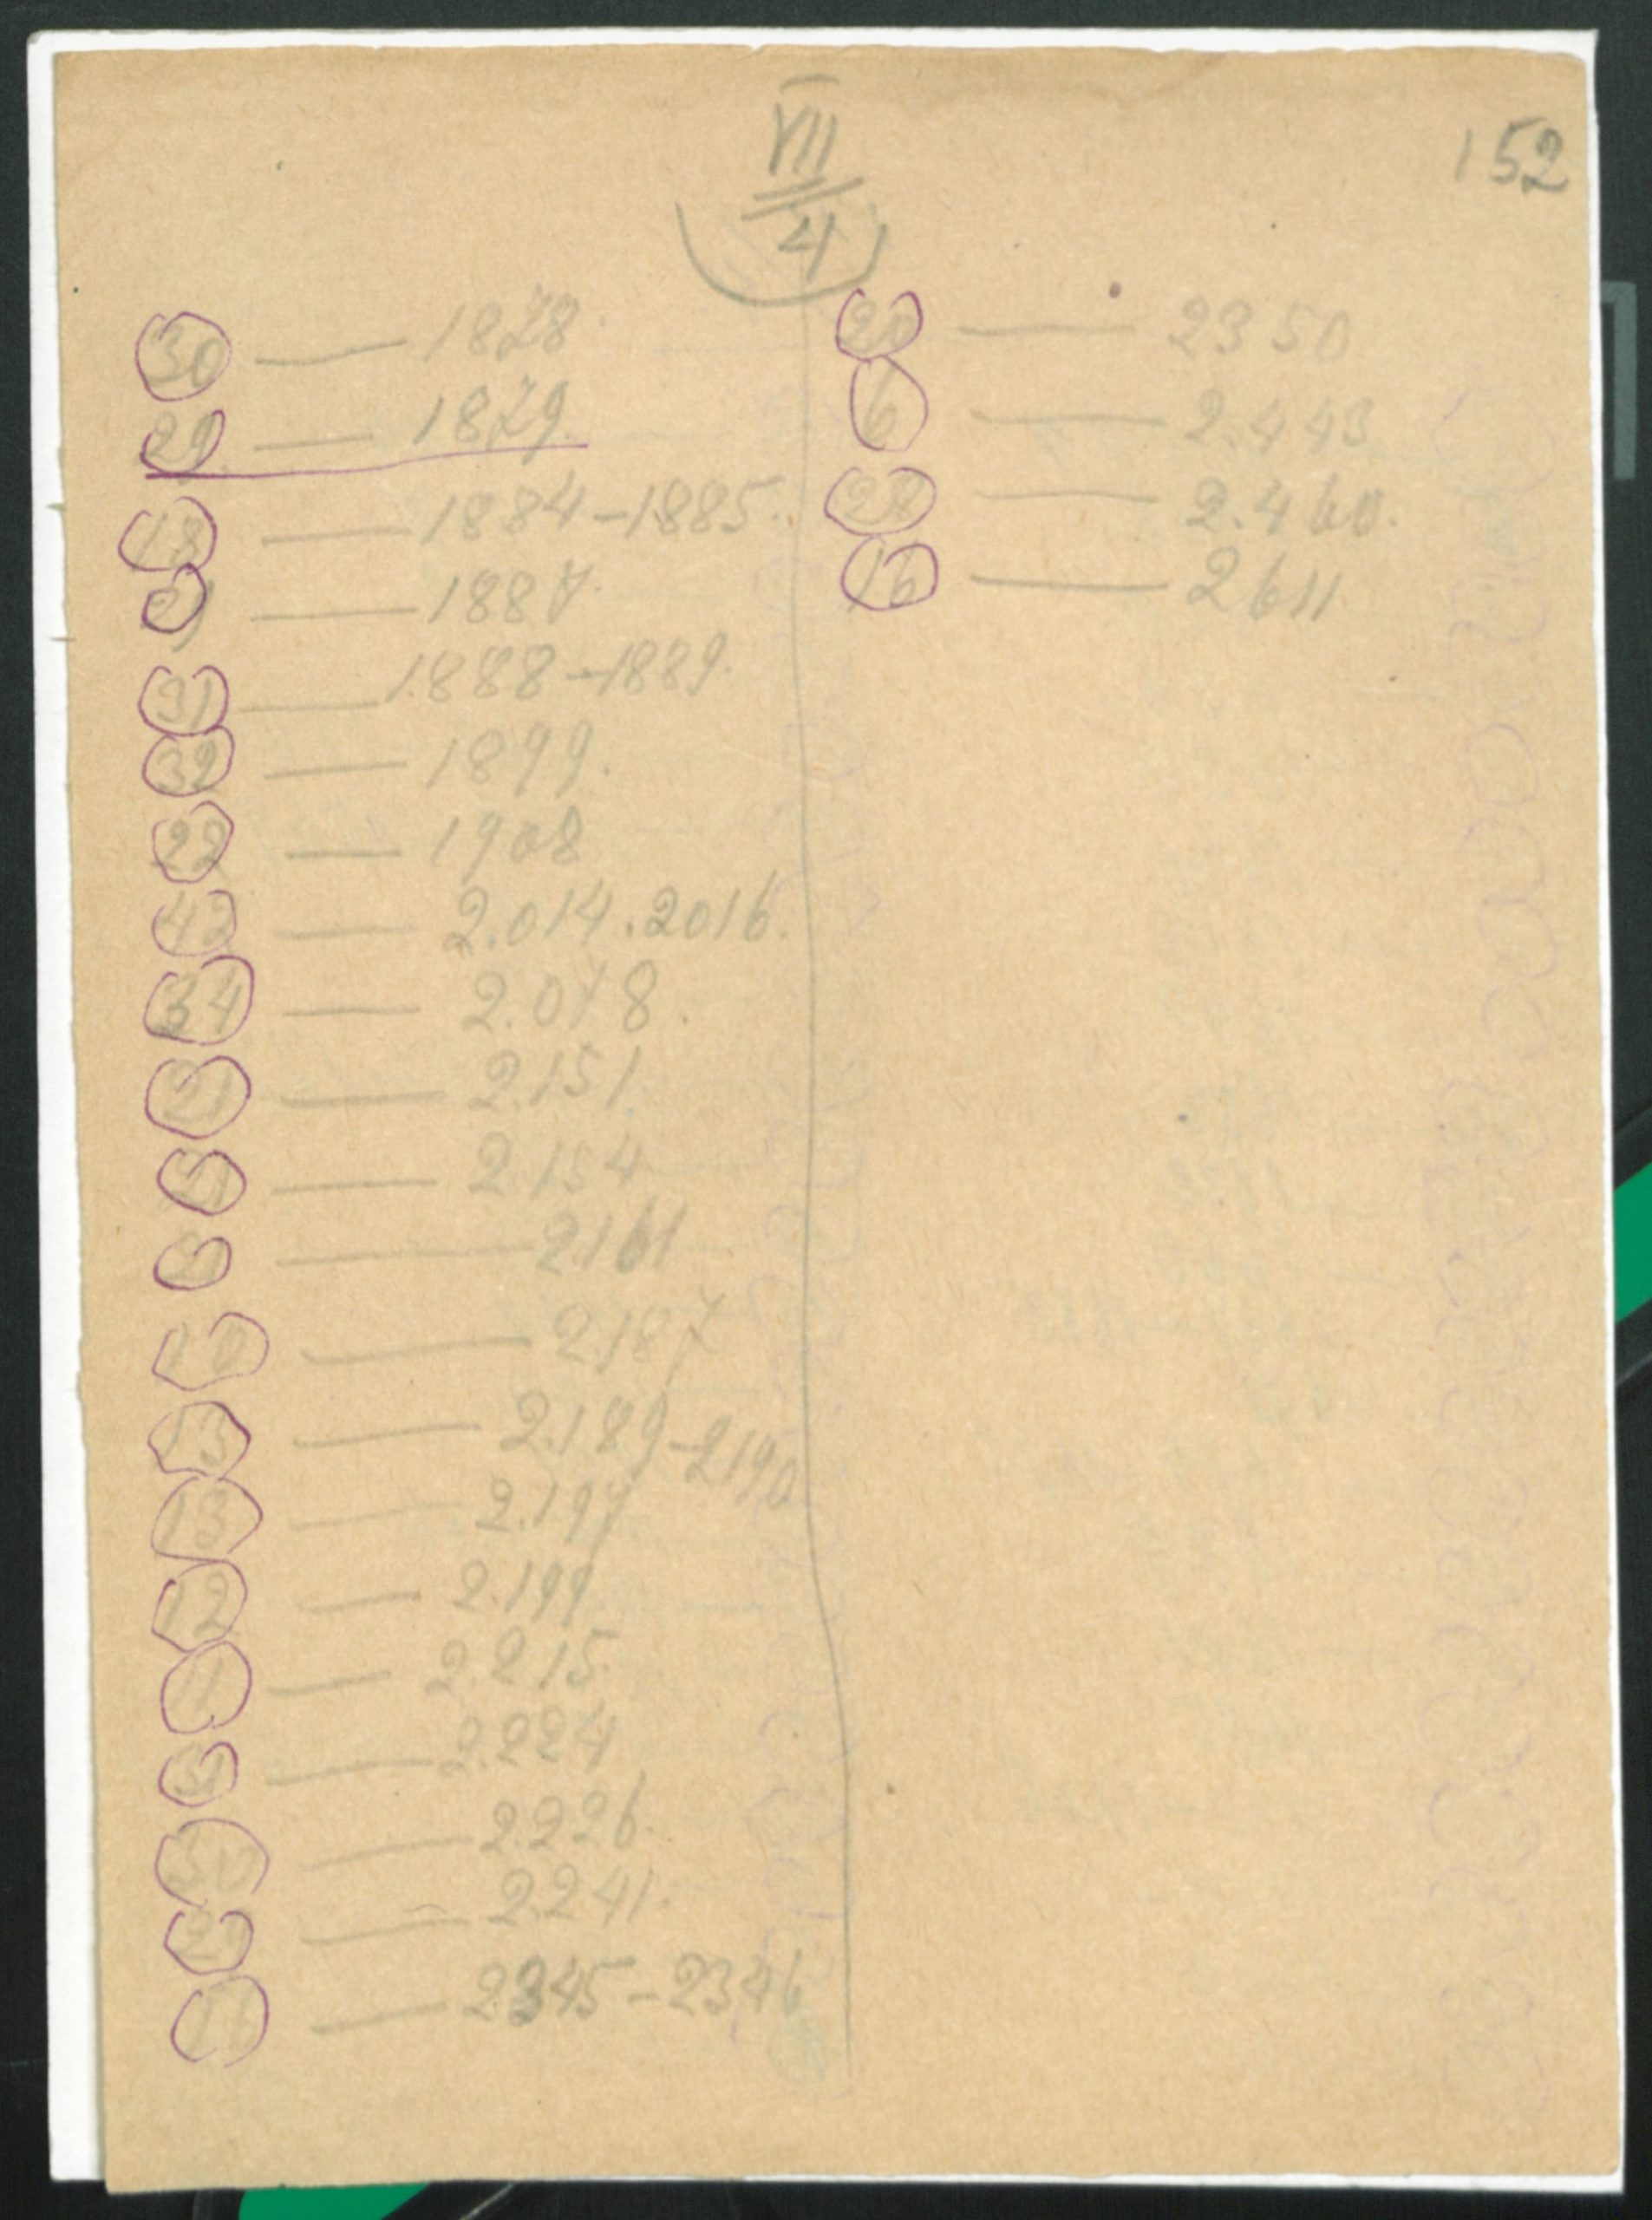 152
VII
4
30 — 1878.
29 — 1879.
18 — 1884-1885.
— 1887.
31 — 1.888-1889.
32 — 1899.
22 — 1908
42 — 2.014.2016.
34 — 2.078.
21 — 2.151.
21 — 2.154
— 2161
— 2187
15 — 2.189-2190
13 — 2.197
12 — 2.199
11 — 2.215
— 2.224
30 — 2.226.
— 2241.
— 2345-2346
20 — 2350
6 — 2.443
28 — 2.460.
16 — 2611